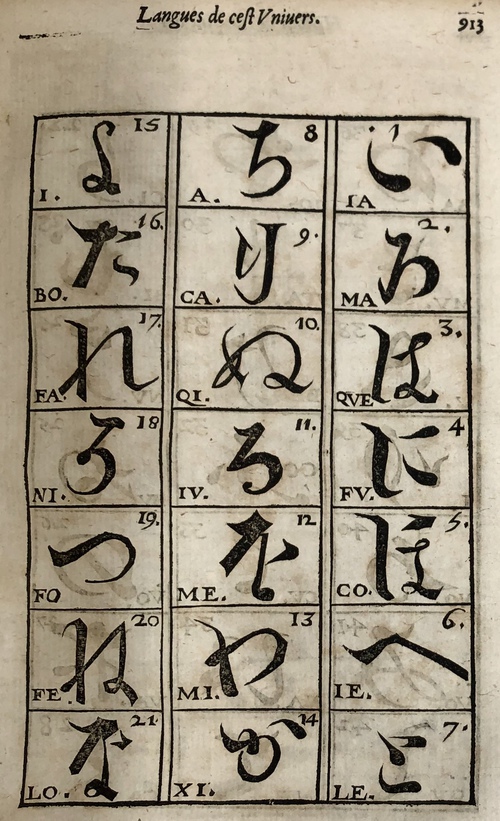 Langues de cest Vniuers.
913
15 8 1
よ ち い
I. A. IA
16. 9. 2.
た り ろ
BO. CA. MA
17. 10. 3.
れ ぬ は
FA. QI. QVE
18 11. 4
そ る に
NI. IV. FV.
19. 12 5.
つ を ほ
FO ME. CO.
20 13 6.
ね わ へ
FE MI. IE.
21 14 7.
な か と
LO. XI. LE.